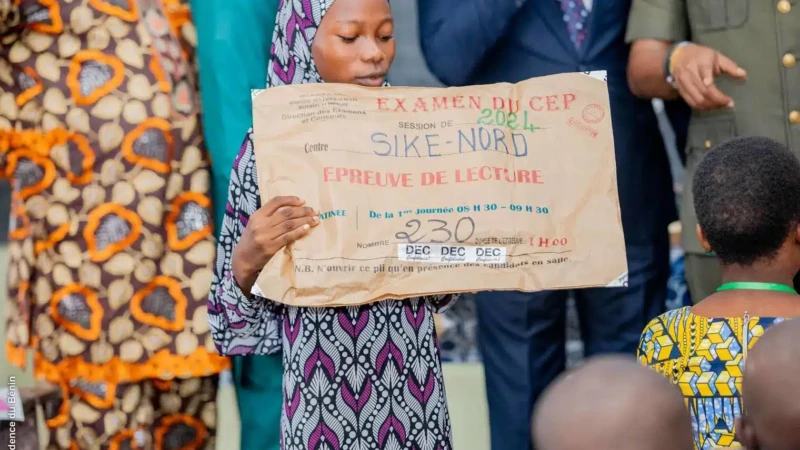 EXAMEN DU CEP
Direction des Examens
et Concours
SESSION DE 2024
Centre SIKE-NORD
EPREUVE DE LECTURE
De la 1ère Journée 08 H 30 - 09 H 30
NOMBRE 230 DUREE DE L'EPREUVE : 1H00
DEC DEC DEC
N.B. N'ouvrir ce pli qu'en présence des candidats en salle.
dence du Bénin